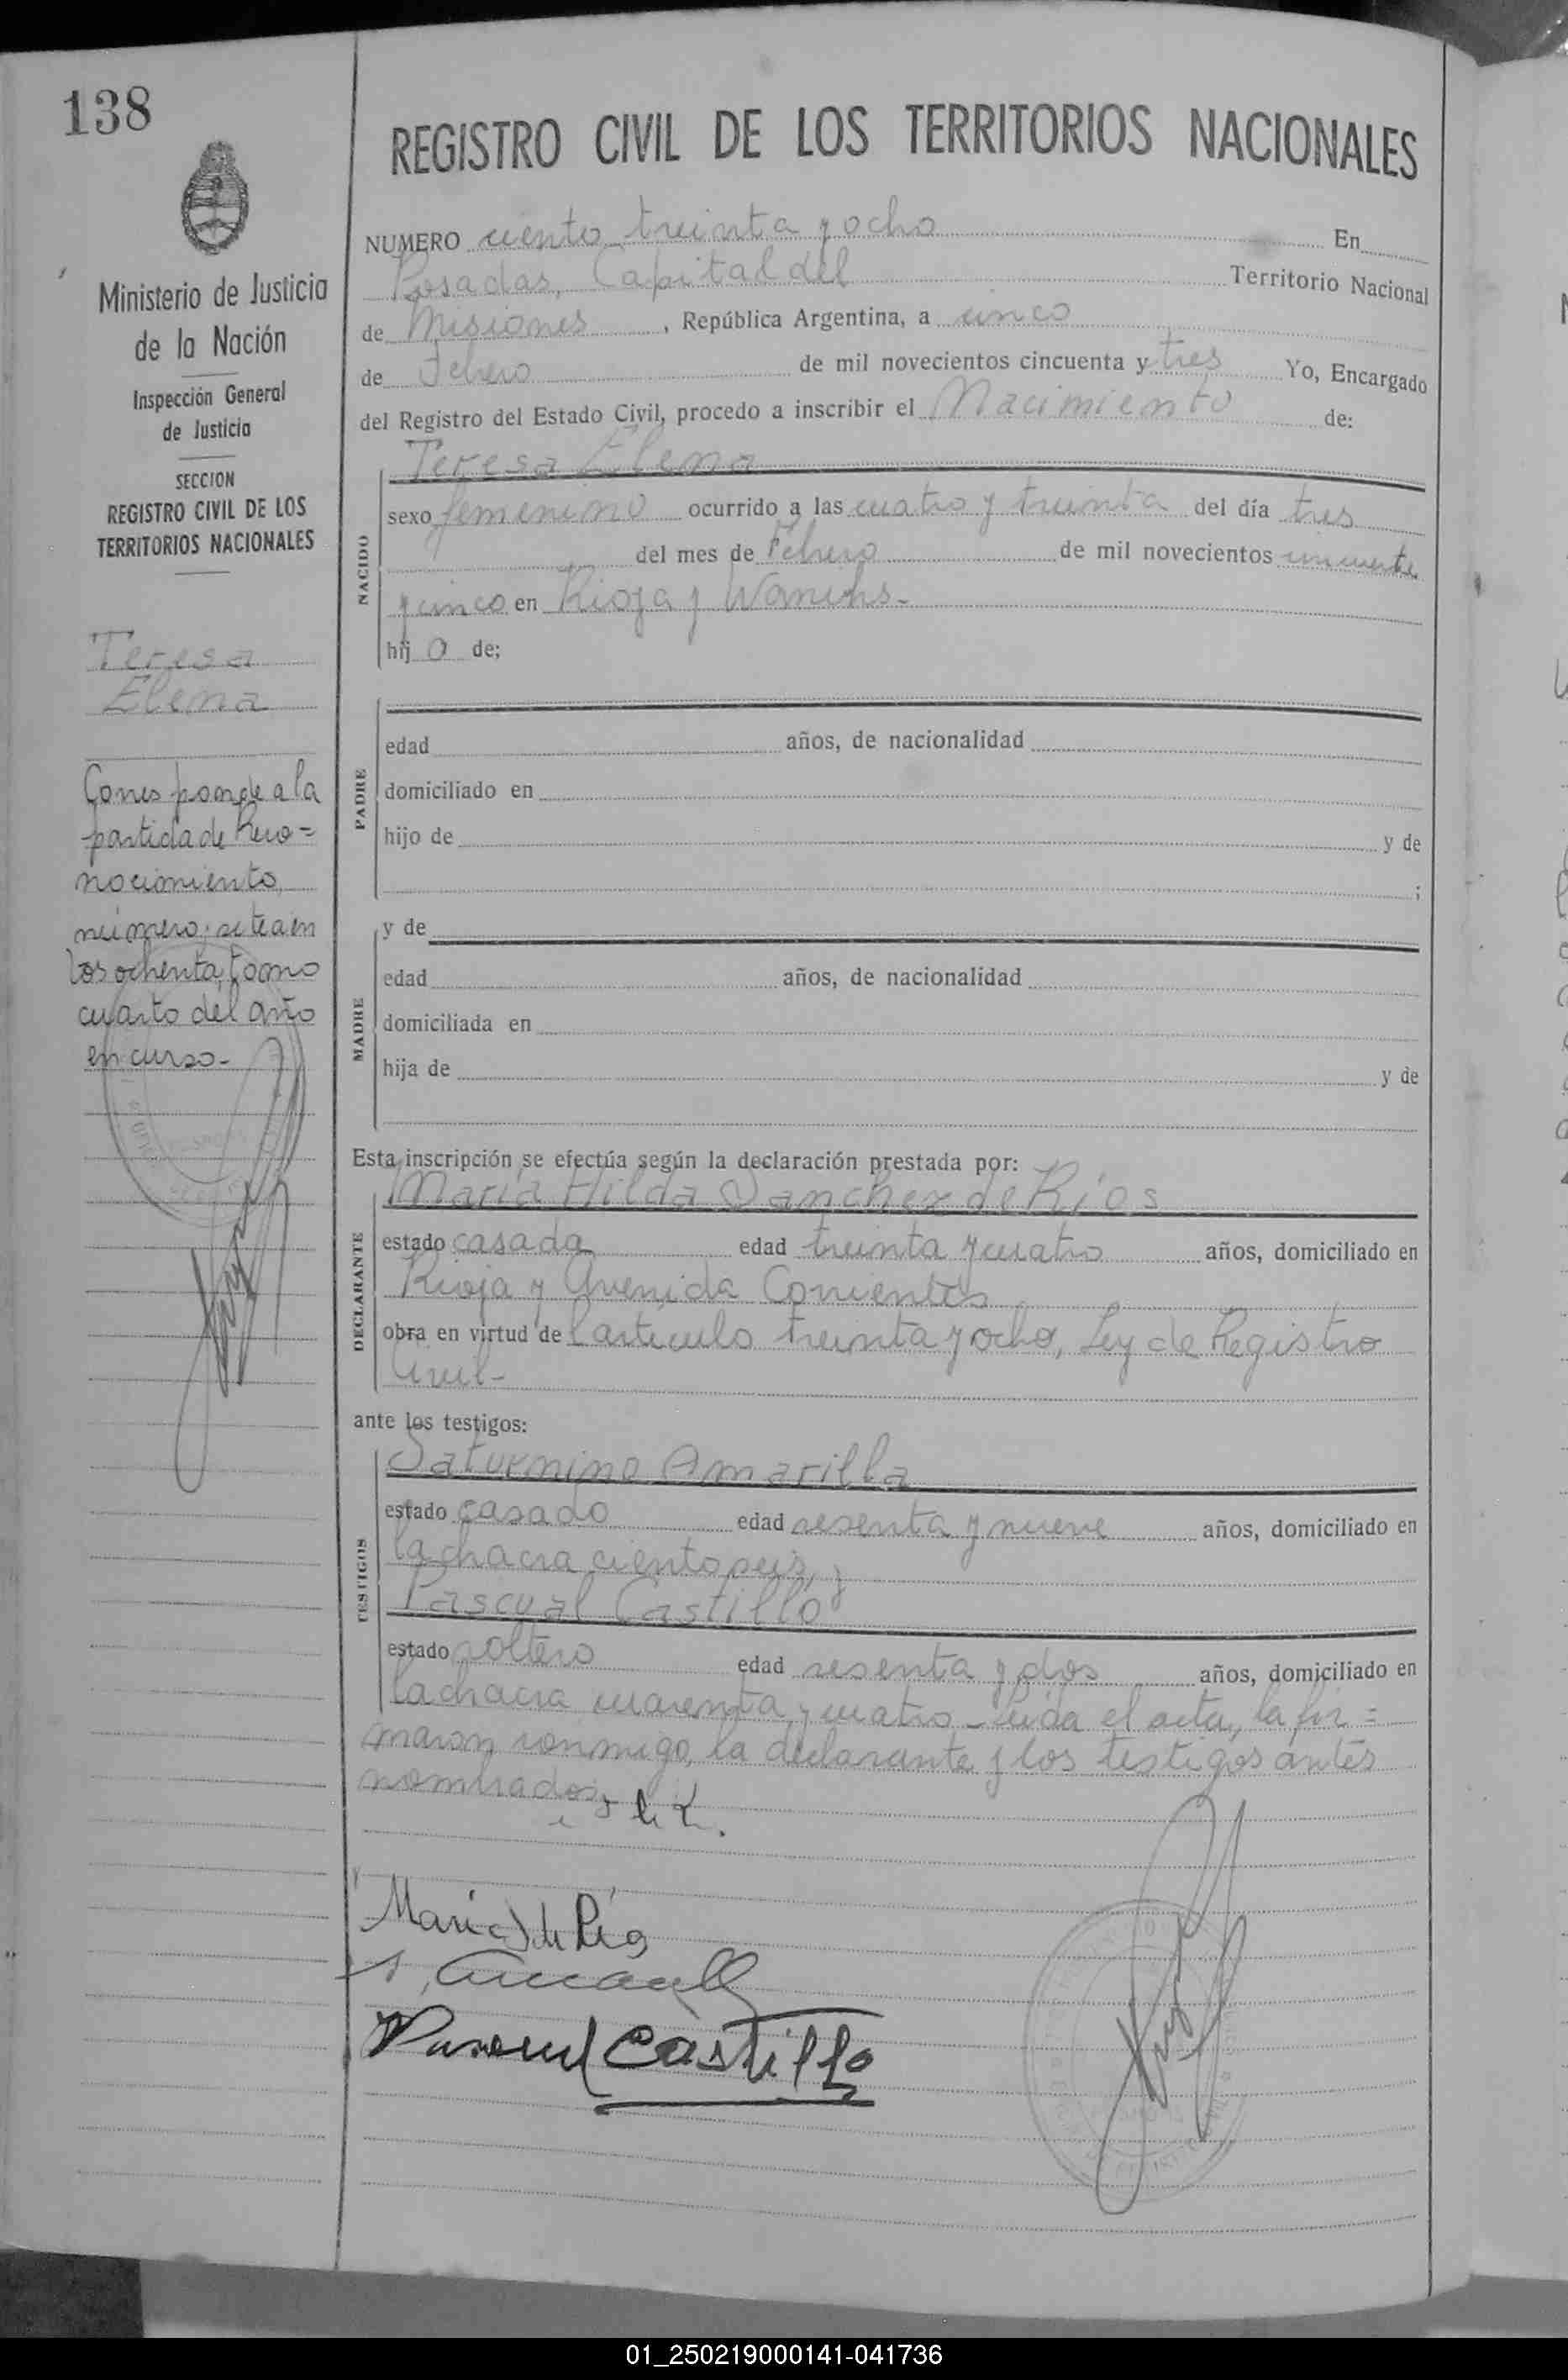 138
REGISTRO CIVIL DE LOS TERRITORIOS NACIONALES
NUMERO ciento treinta y ocho En
Posadas, Capital del Territorio Nacional
de Misiones, República Argentina, a cinco
de Febrero de mil novecientos cincuenta y tres Yo, Encargado
del Registro del Estado Civil, procedo a inscribir el Nacimiento de:
Teresa Elena
NACIDO
sexo femenino ocurrido a las cuatro y treinta del día tres
del mes de Febrero de mil novecientos cincuenta
y cinco en Rioja y
hij a de;
PADRE
edad años, de nacionalidad
domiciliado en
hijo de y de
;
MADRE
y de
edad años, de nacionalidad
domiciliada en
hija de y de
Esta inscripción se efectúa según la declaración prestada por:
DECLARANTE
María Hilda Sanchez de Ríos
estado casada edad treinta y cuatro años, domiciliado en
Rioja y Avenida Corrientes
obra en virtud del artículo treinta y ocho, Ley de Registro
Civil-
ante los testigos:
TESTIGOS
Saturnino Amarilla
estado casado edad sesenta y nueve años, domiciliado en
la chacra ciento seis, y
Pascual Castillo
estado soltero edad sesenta y dos años, domiciliado en
la chacra cuarenta y cuatro - Leída el acta, la fir=
maron conmigo, la declarante y los testigos antes
nombrados
María S de Ríos
Pascual Castillo
Ministerio de Justicia
de la Nación
Inspección General
de Justicia
SECCION
REGISTRO CIVIL DE LOS
TERRITORIOS NACIONALES
Teresa
Elena
Corresponde a la
partida de Reco=
nocimiento
número: setecien
tos ochenta, tomo
cuarto del año
en curso-
01_250219000141-041736